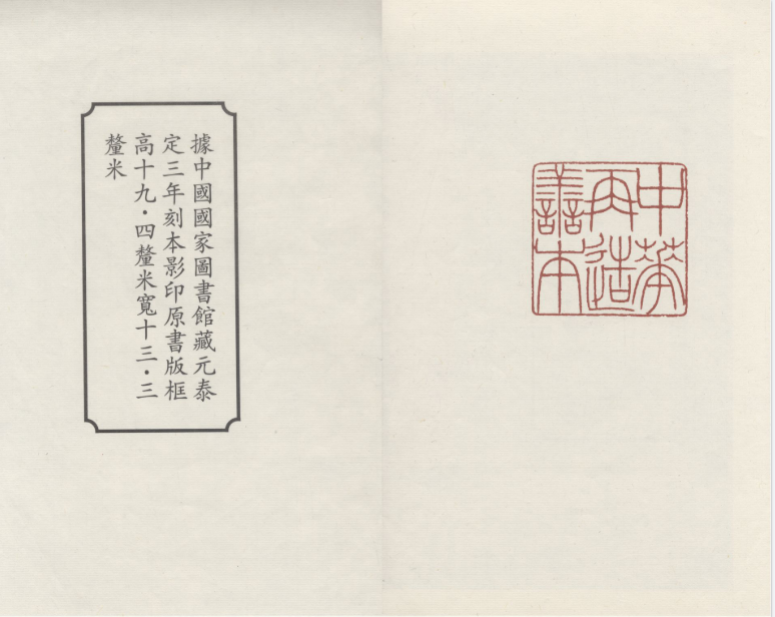 中華
再造
善本
據中國國家圖書館藏元泰
定三年刻本影印原書版框
高十九·四釐米寬十三·三
釐米